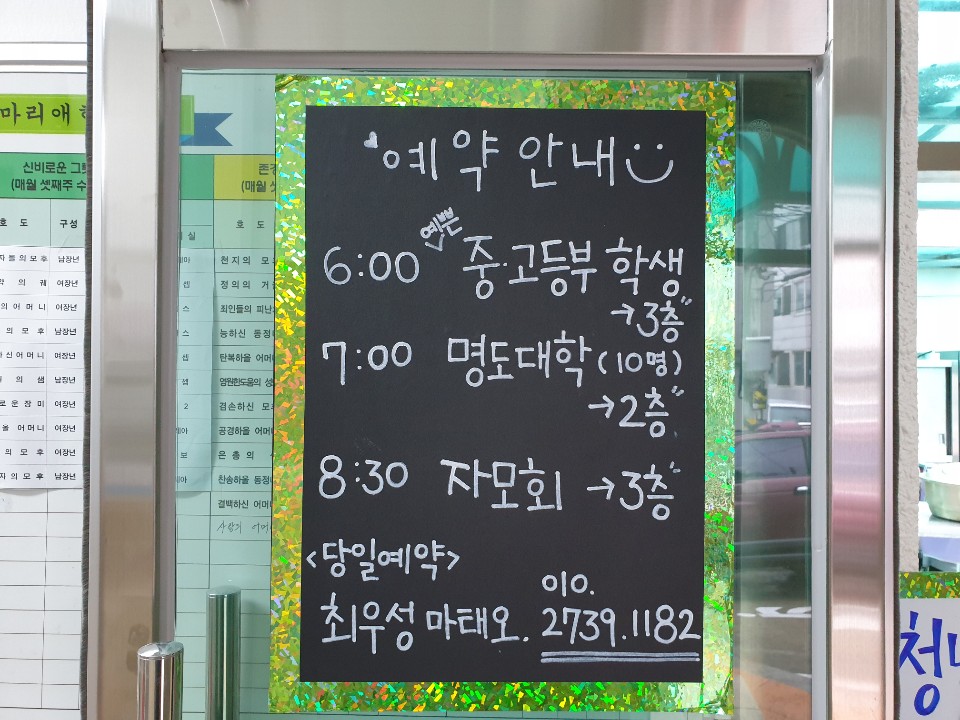 예약 안내
예쁜
6:00 중·고등부 학생
→3층
7:00 명도대학 (10명)
→2층
8:30 자모회 →3층
<당일예약>
010.
최우성 마태오. 2739.1182
마리애
신비로운
(매월 셋째주 수
호 도 구성
의 모후 남장년
의 궤 여장년
의 어머니 여장년
의 모후 남장년
하신 어머니 여장년
의 샘 남장년
로운 장미 여장년
올 어머니 여장년
의 모후 여장년
지의 모후 남장년
(매월
호 도
천지의 모
정의의 거
죄인들의 피난
능하신 동정
탄복하올 어머
영원한도움의 성
2 겸손하신 모
공경하올 어머
은총의
찬송하올 동정
결백하신 어머
청